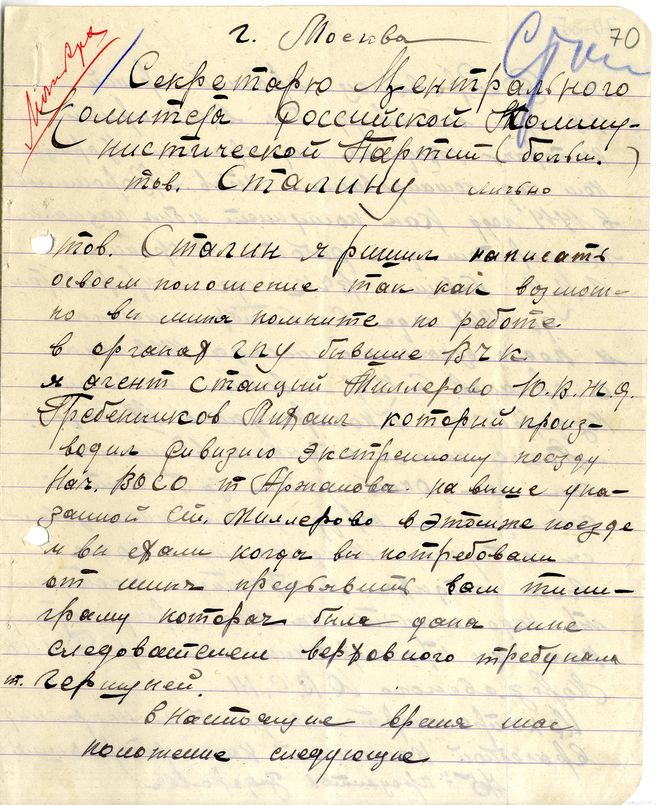 70
г. Москва
Секретарю Центрального
Комитета Российской Комму-
нистической Партий (больш.)
тов. Сталину лично
тов. Сталин я ришил написать
освоем положение так как возмож-
но вы миня помните по работе.
в органах ГПУ бывшие ВЧК.
я агент стаций Миллерово Ю.В.Ж.Д.
Гребенников Михаил который произ-
водил ривизию экстренному поезду
Нач. ВОСО т Аржанова на выше ука-
занной ст. Миллерово в этомже поезде
и вы ехали когда вы потребовали
от миня предъявить вам тили-
граму которая была дана мне
следователем верховного требунала
т.
в настоящие время мое
положение следующие